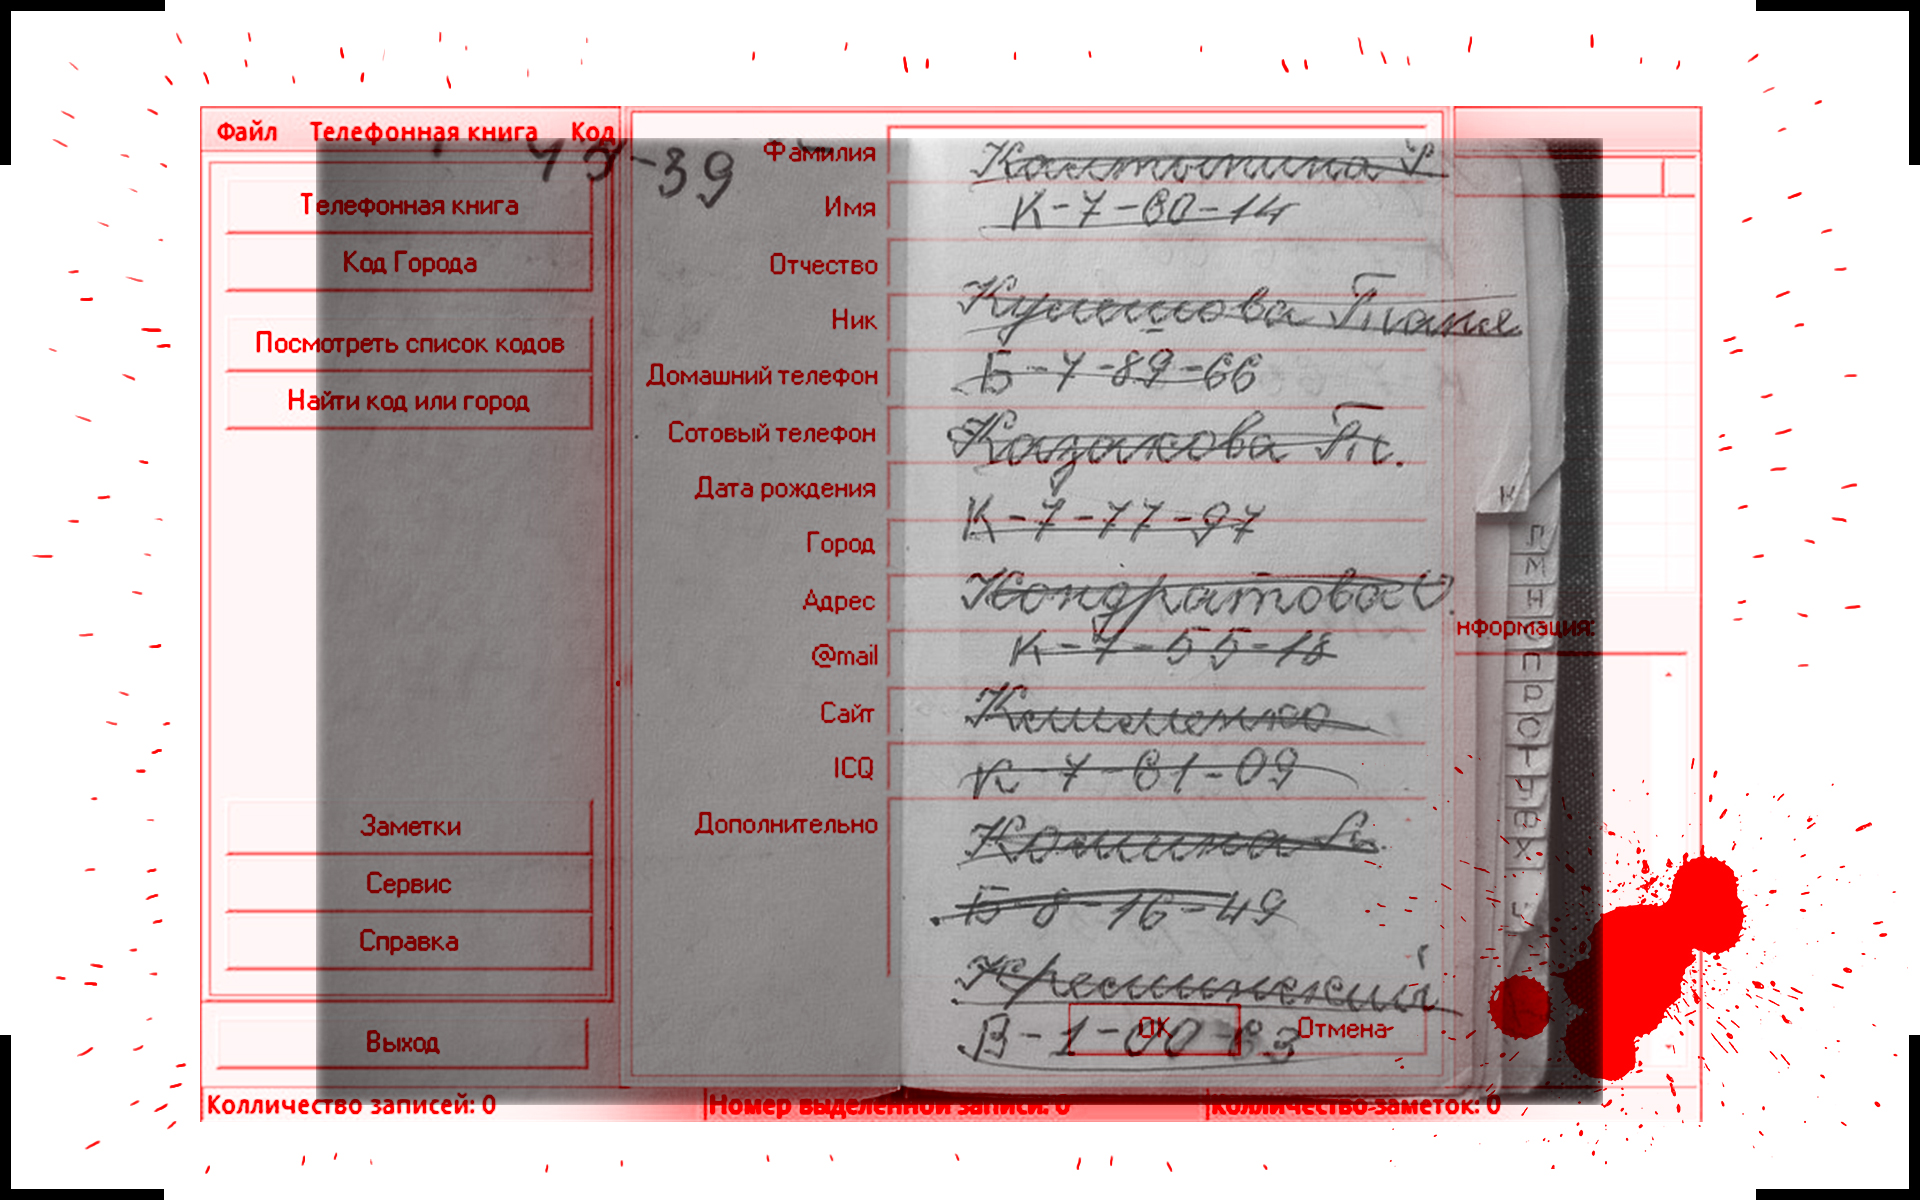 Файл Телефонная книга Код
Телефонная книга
Код Города
Посмотреть список кодов
Найти код или город
Заметки
Сервис
Справка
Выход
-39
Фамилия
Имя
Отчество
Ник
Домашний телефон
Сотовый телефон
Дата рождения
Город
Адрес
@mail
Сайт
ICQ
Дополнительно
К-7-60-14
Кулешова Таня
Б-7-89-66
Казакова Т.
К-7-77-97
Кондратова О.
К-7-55-18
Клименко
К-7-61-09
Комина
Б-8-16-49
В-1-00-63
ОК Отмена
К
Л
М
Н
О
П
Р
С
Т
У
Ф
Х
нформация:
Колличество записей: 0 Номер выделенной записи: 0 Колличество заметок: 0